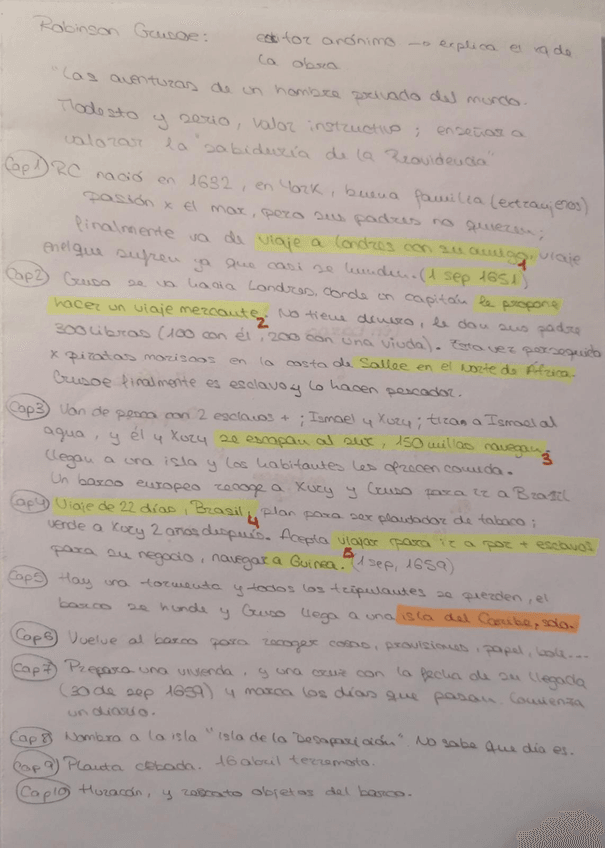 Robinson Crusoe: autor anónimo → explica el xq de
la obra
"Las aventuras de un hombre privado del mundo.
Modesto y serio, valor instructivo; enseñar a
valorar la "sabiduría de la Providencia"
Cap1 RC nació en 1632, en York, buena familia (extranjeros)
pasión x el mar, pero sus padres no quieren;
finalmente va de viaje a Londres con su amigo, viaje
en el que sufren ya que casi se hunden. (1 sep 1651)
1
Cap2 Cruso se va hacia Londres, donde un capitán le propone
hacer un viaje mercante. No tiene dinero, le dan sus padre
2
300 libras (100 con él, 200 con una viuda). Esta vez perseguido
x piratas moriscos en la costa de Sallee en el norte de África.
Crusoe finalmente es esclavo y lo hacen pescador.
Cap3 Van de pesca con 2 esclavos +; Ismael y Xury; tiran a Ismael al
agua, y él y Xury se escapan al sur, 150 millas navegan,
3
llegan a una isla y los habitantes les ofrecen comida.
Un barco europeo recoge a Xury y Cruso para ir a Brasil
Cap4 Viaje de 22 días, Brasil, plan para ser plantador de tabaco;
4
verde a Xury 2 años después. Acepta viajar para ir a por + esclavos
5
para su negocio, navegar a Guinea. (1 sep, 1659)
Cap5 Hay una tormenta y todos los tripulantes se pierden, el
barco se hunde y Cruso llega a una isla del Caribe, solo.
Cap6 Vuelve al barco para recoger cosas, provisiones, papel, ...
Cap7 Prepara una vivienda, y una cruz con la fecha de su llegada
(30 de sep 1659) y marca los días que pasan. Comienza
un diario.
Cap8 Nombra a la isla "Isla de la Desaparición" No sabe que día es.
Cap9 Planta cebada. 16 abril terremoto.
Cap10 Huracán, y rescato objetos del barco.